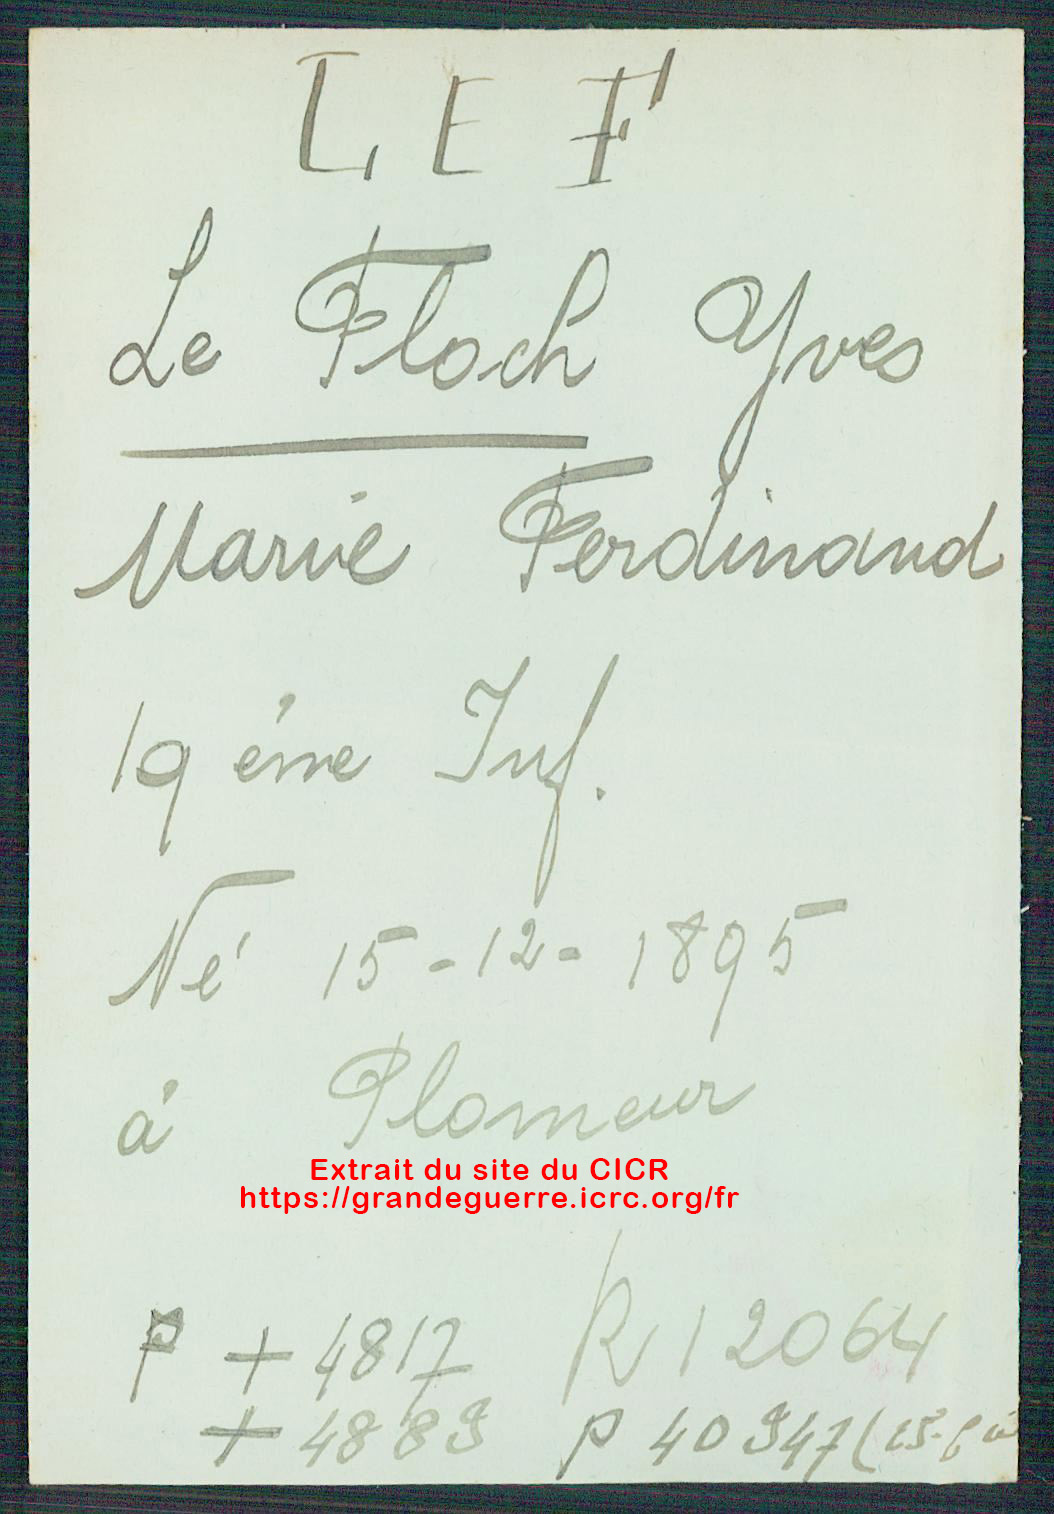 LEF
Le Floch Yves
Marie Ferdinand
19 ème Inf.
Né 15-12-1895
à Plomeur
Extrait du site du CICR
https://grandeguerre.icrc.org/fr
P + 4817 R 12064
+ 4889 P 40947 (